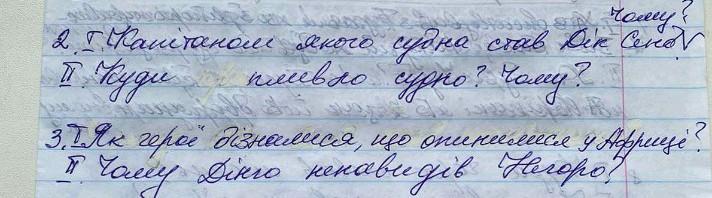 Чому?
2. I. Капітаном якого судна став Дік Сенд?
II. Куди пливло судно? Чому?
3. I Як герої дізналися, що опинилися у Африці?
II. Чому Дінго ненавидів Негоро?